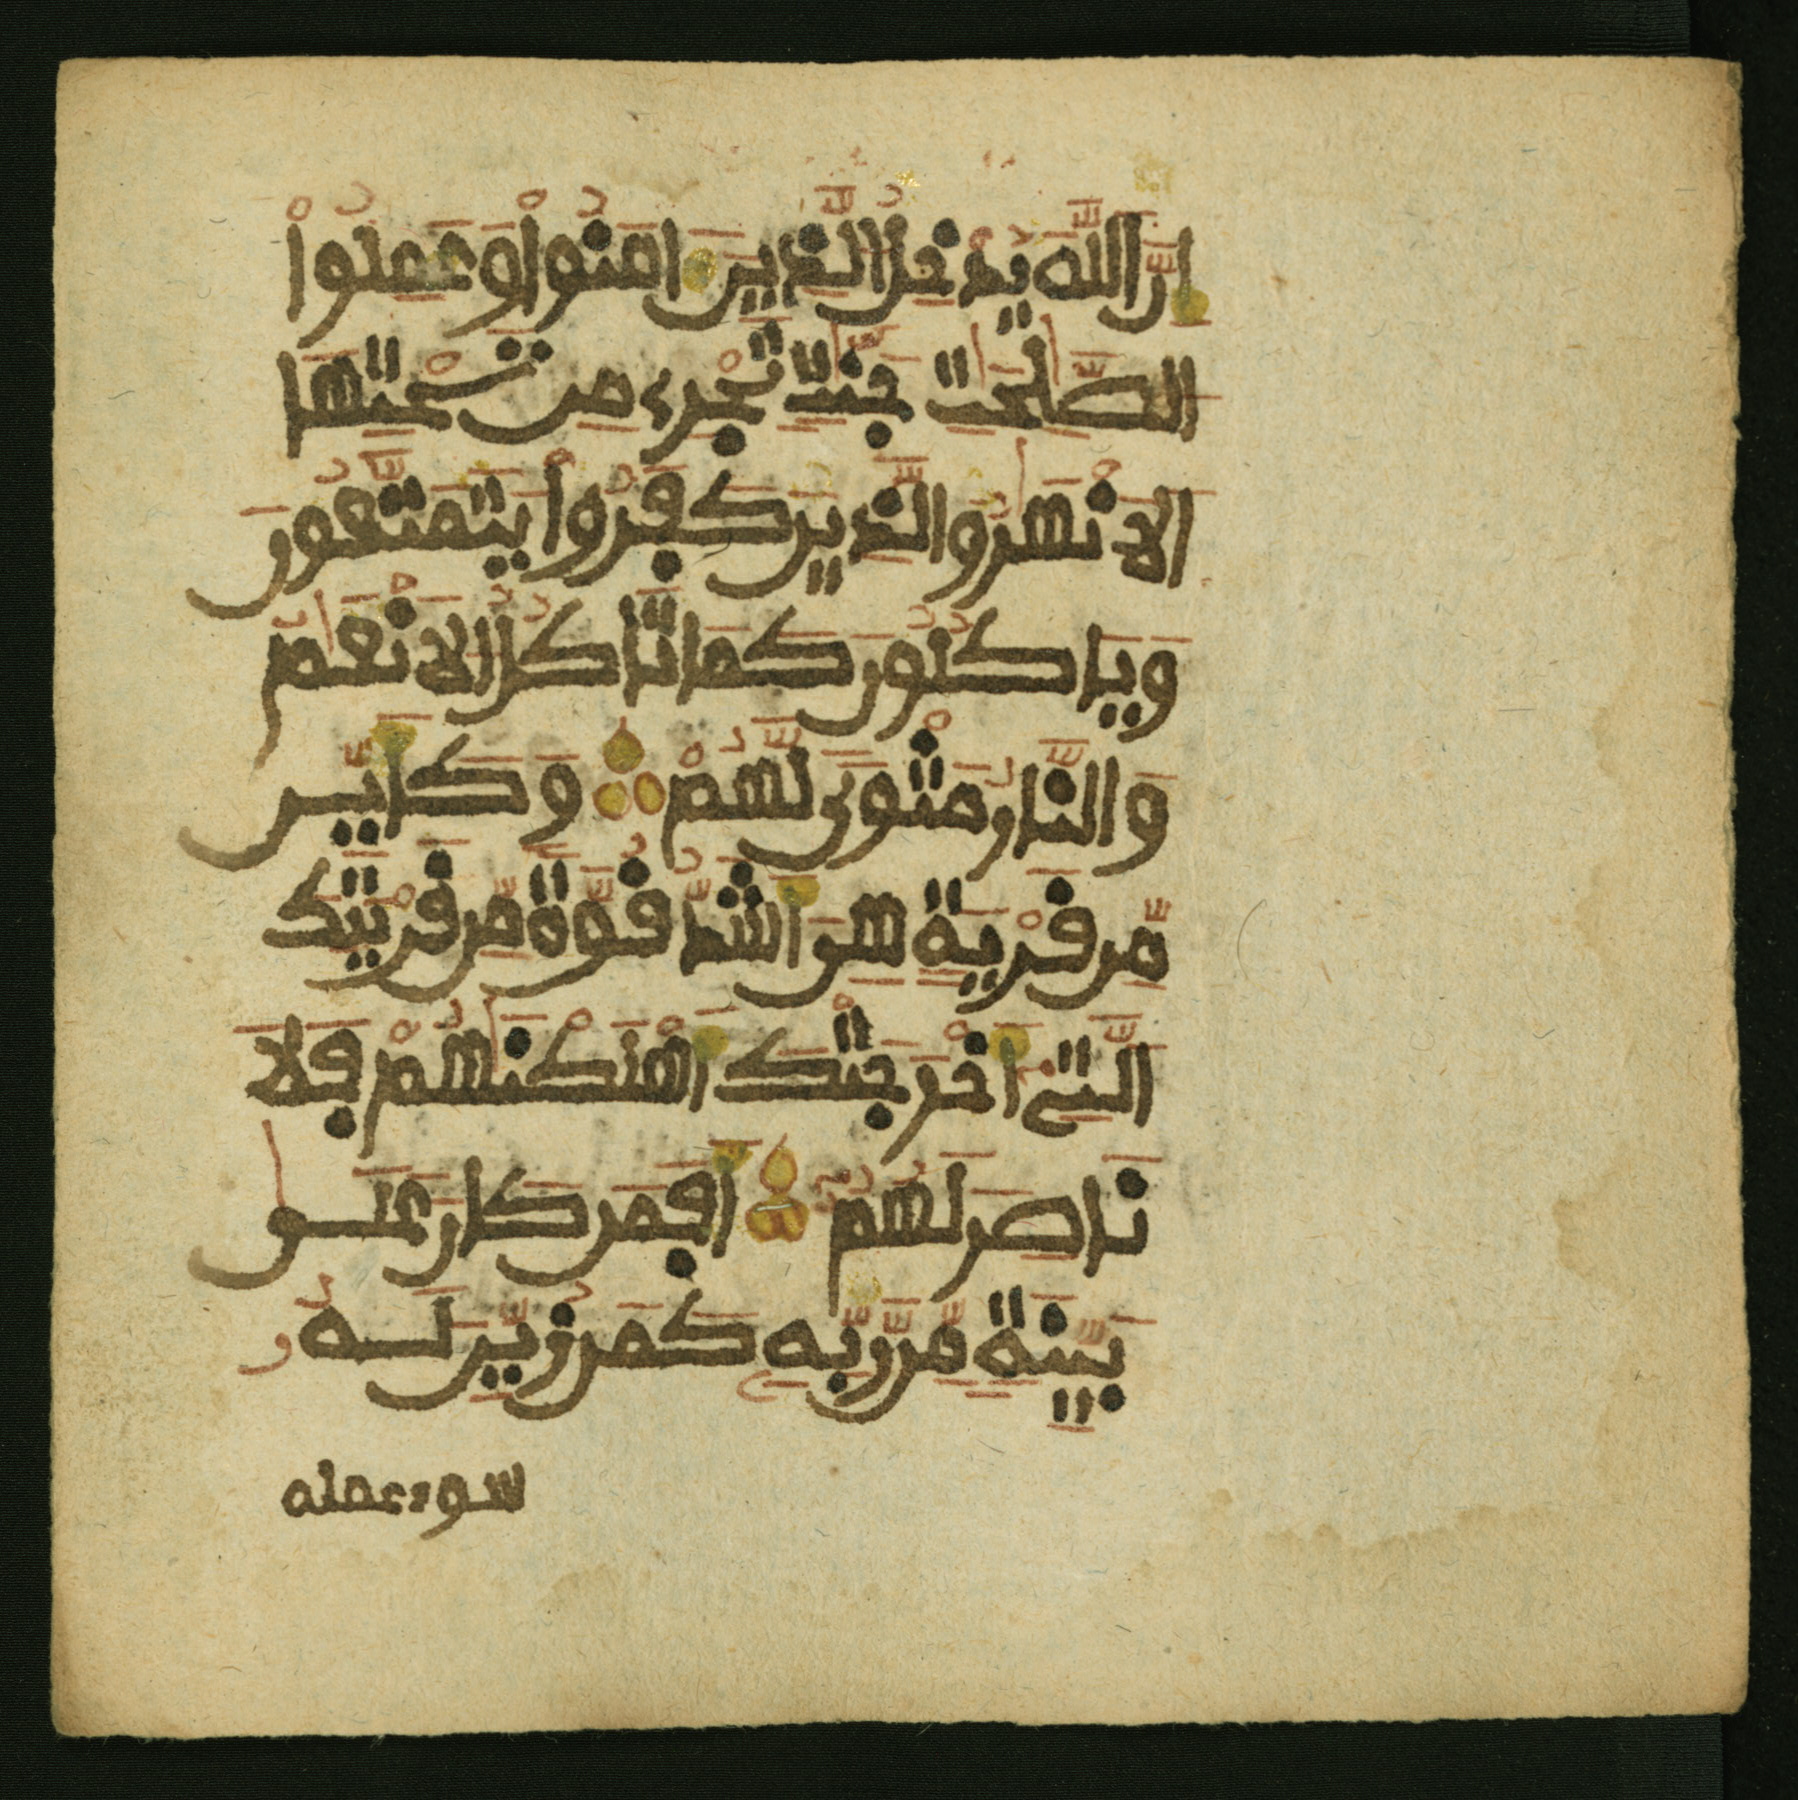 إنَّ اللَّهَ يُدْخِلُ الَّذِينَ ءَامَنُوا۟ وَعَمِلُوا۟
الصَّـٰلِحَـٰتِ جَنَّـٰتٍ تَجْرِے مِن تَحْتِهَا
اَلَانْهَـٰرُ وَالَّذِينَ كَفَرُوا۟ يَتَمَتَّعُونَ
وَيَاكُلُونَ كَمَا تَاكُلُ اُلَانْعَـٰمُ
وَالنَّارُ مَثْوًى لَّهُمْ وَكَأَيِّن
مِّن قَرْيَةٍ هِىَ أَشَدُّ قُوَّةً مِّن قَرْيَتِكَ
الَّتِے أَخْرَجَتْكَ أَهْلَكْنَـٰهُمْ فَلَا
نَاصِرَ لَهُمْ أَفَمَن كَانَ عَلَىٰ
بَيِّنَةٍ مِّن رَّبِّهِۦ كَمَن زُيِّنَ لَهُۥ
سوء عمله